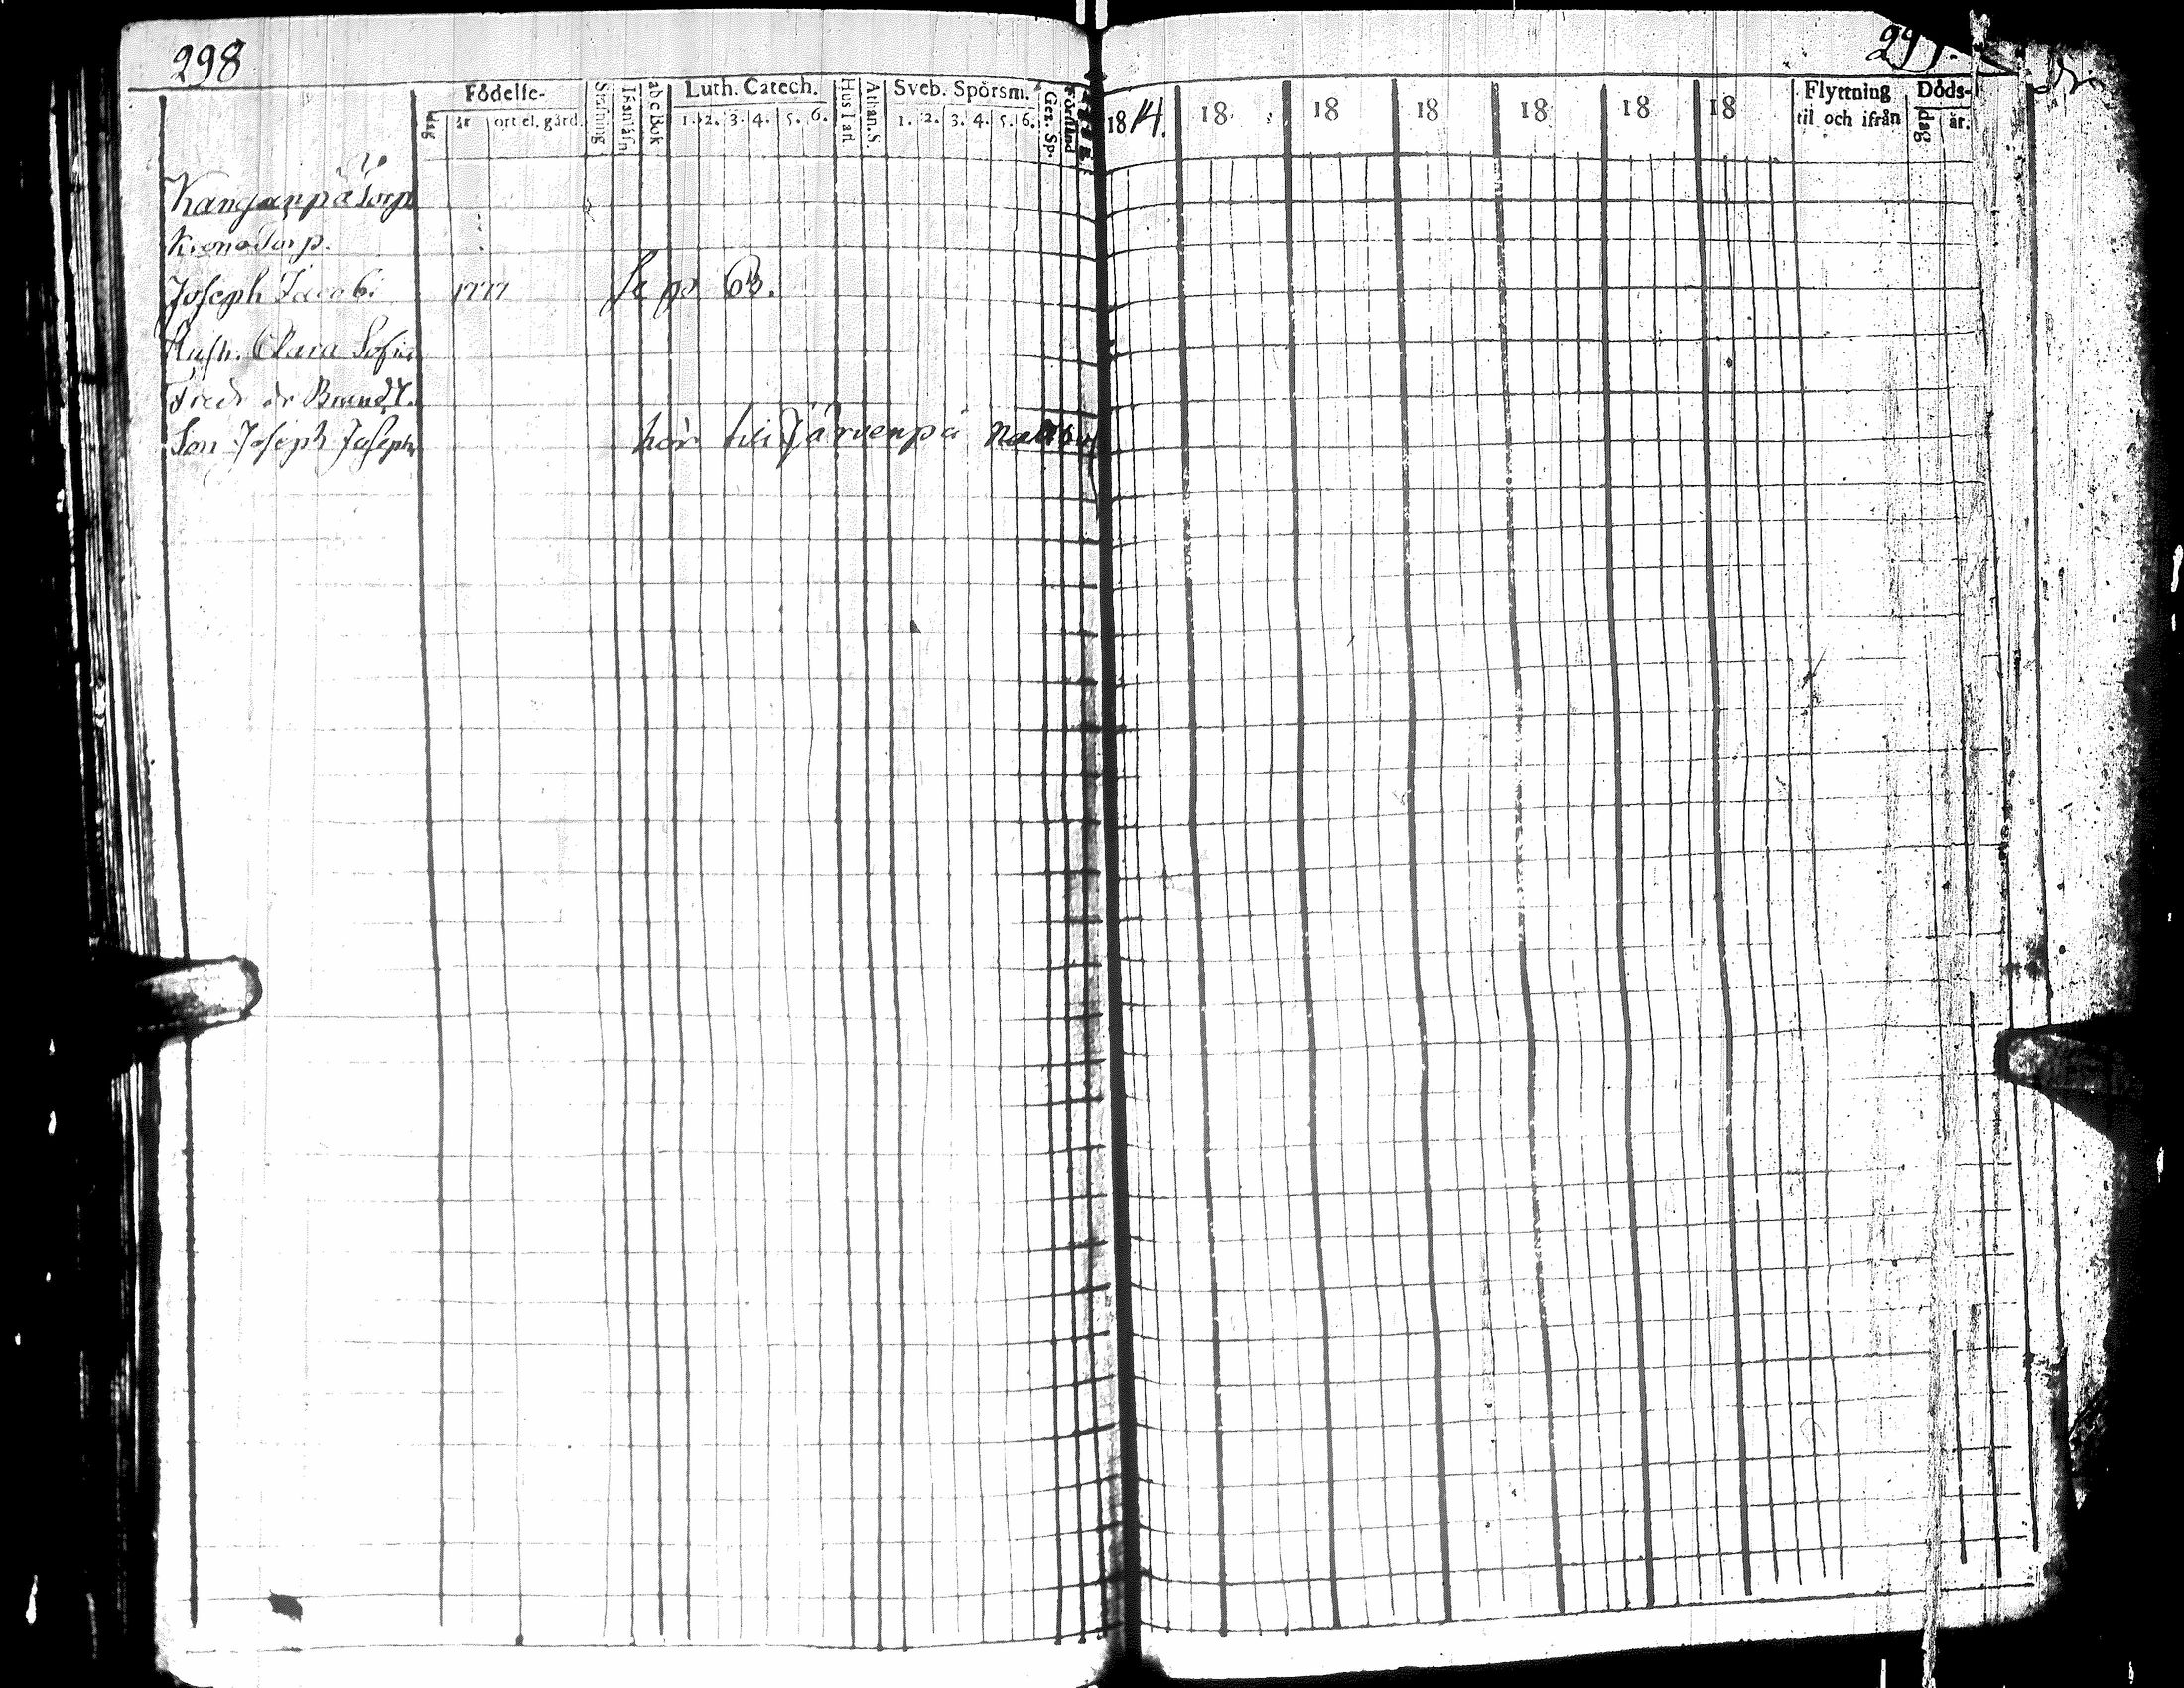 298
Födelse-
dag
år
ort el. gård.
abc Bok
Luth. Catech.
1. 2. 3. 4. 5. 6.
Hus Tafl.
Athan. S.
Sveb. Spörsm.
1. 2. 3. 4. 5. 6.
Ger. Sp.
Förstånd
1814.
18
18
18
18
18
18
Flyttning
til och ifrån
Döds-
dag
år.
Kanganpä Torp
Krono Torp.
Joseph Jacobi 1777 Se pa 63.
Hustr. Clara Sofia
Son Joseph Joseph hör till Järvenpä